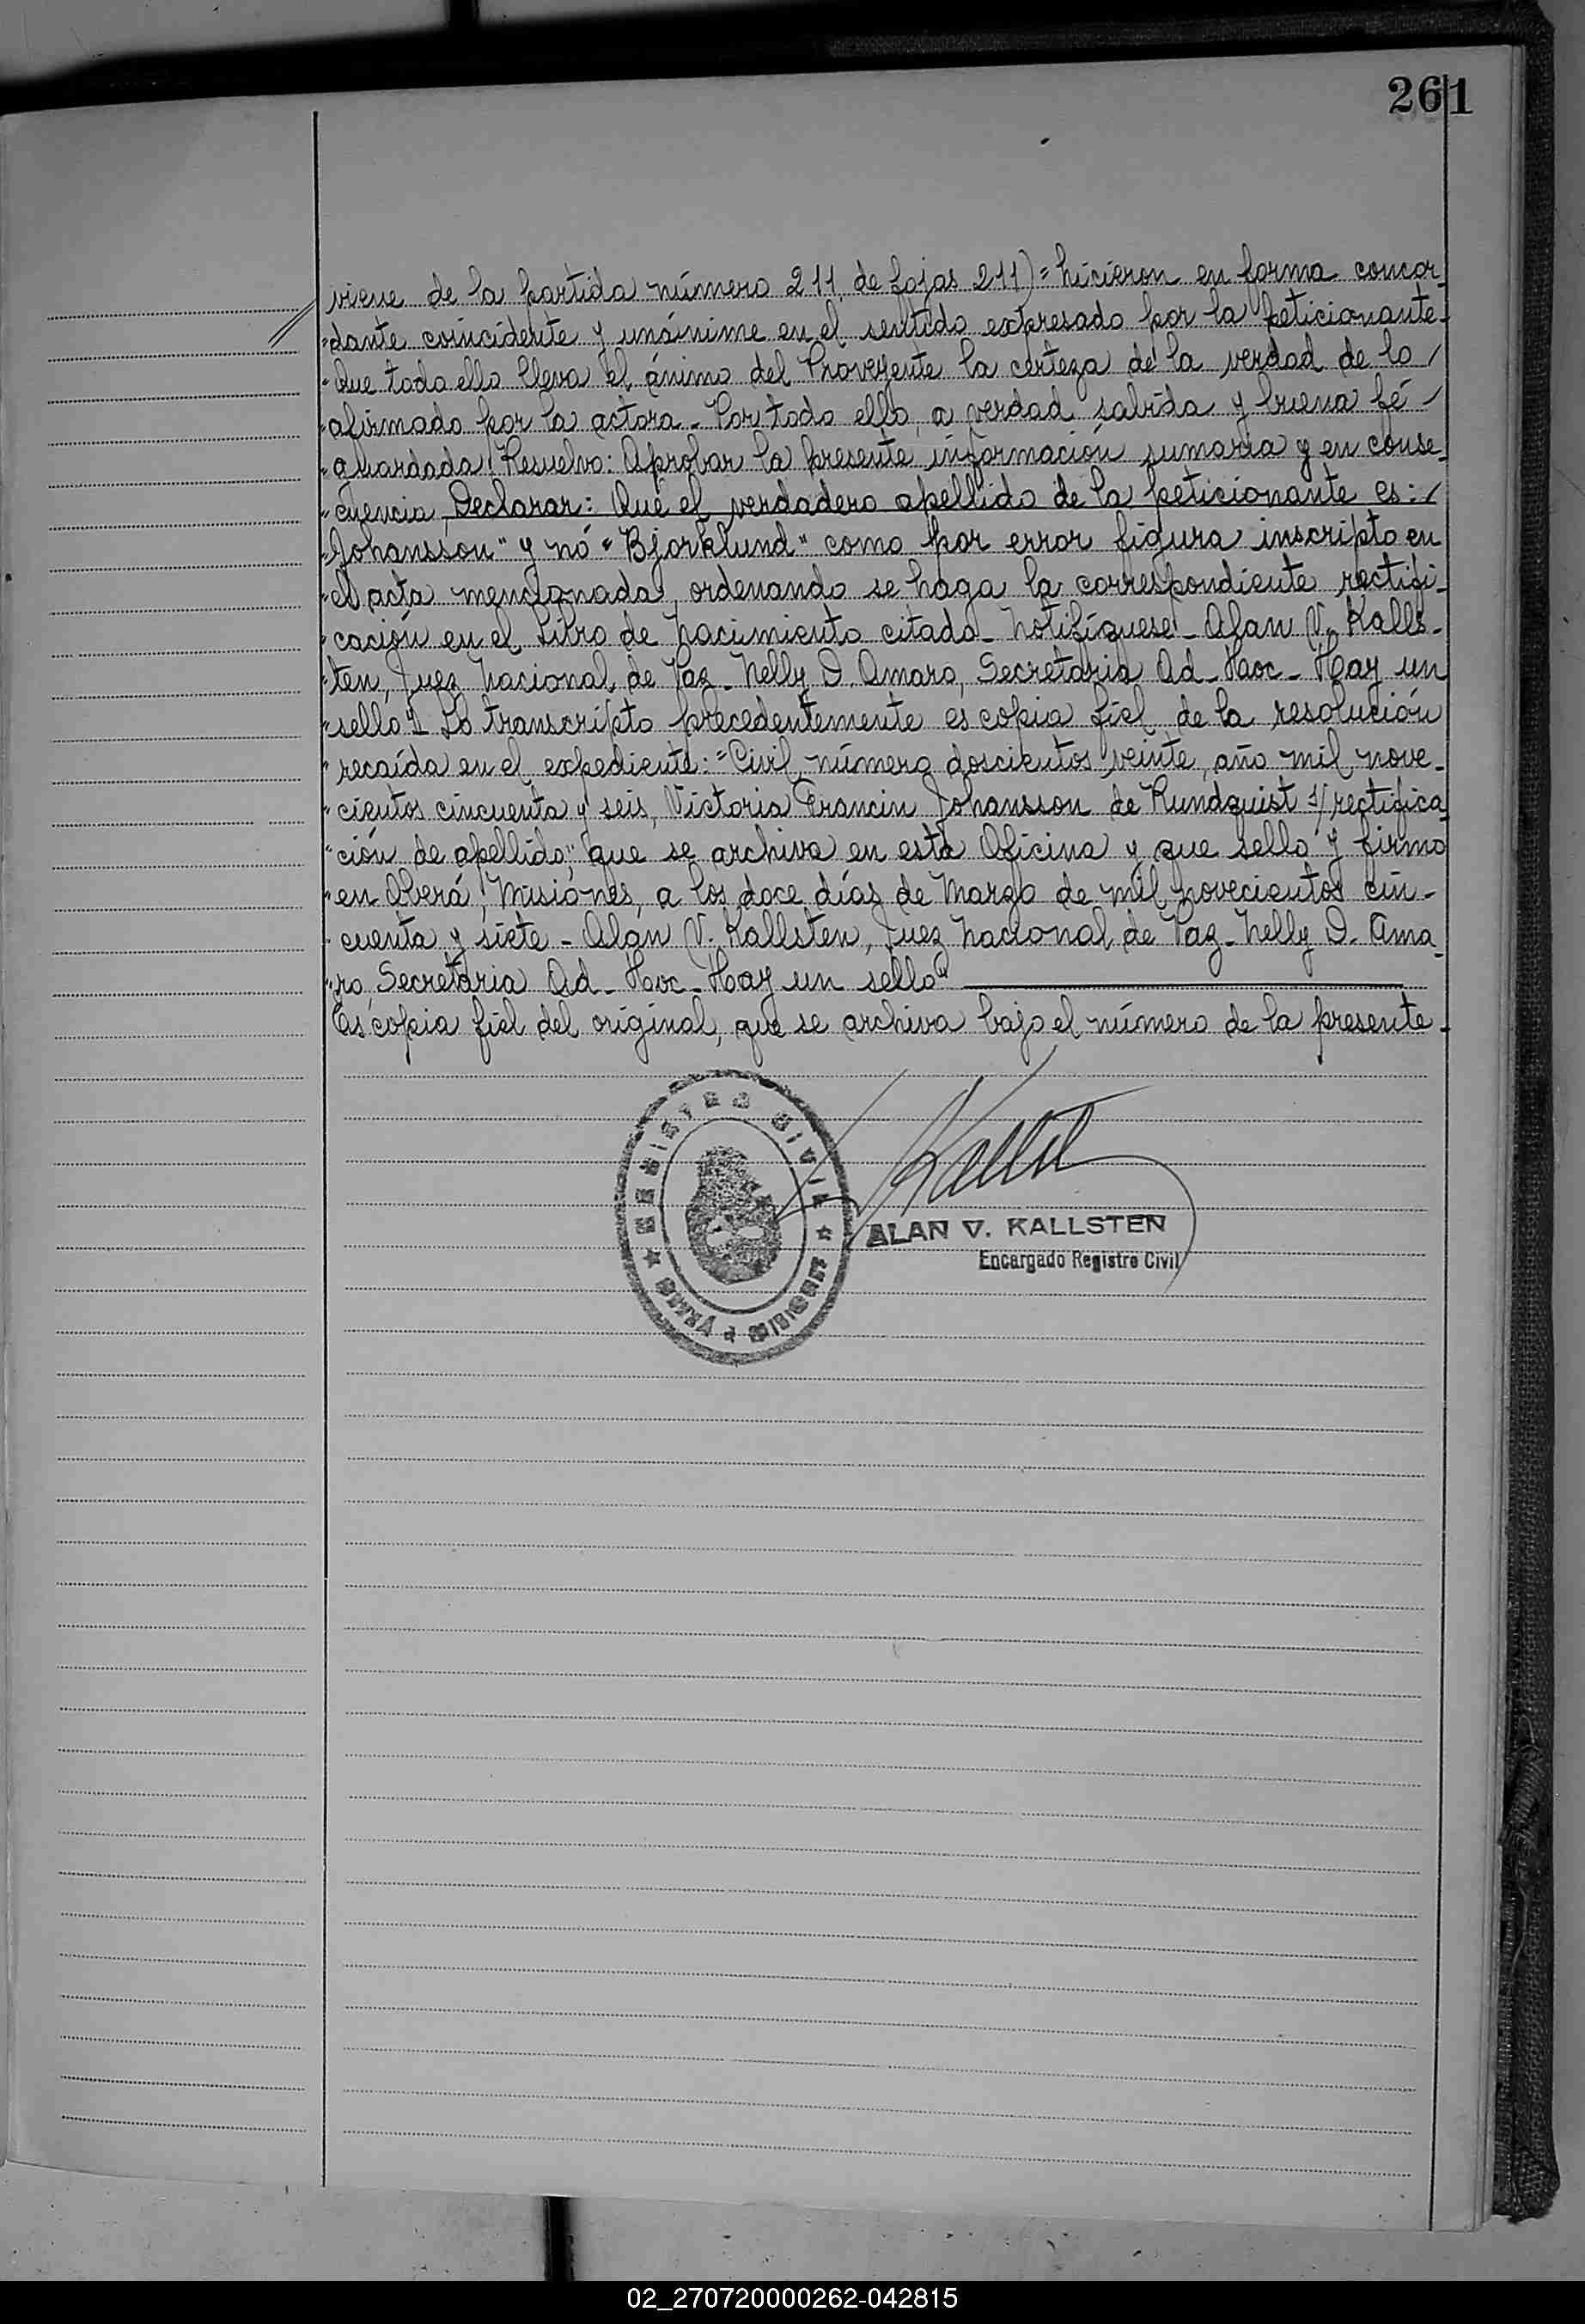 261
viene de la partida número 211, de fojas 211) = hicieron en forma concor-
"dante coincidente y unánime en el sentido expresado por la peticionante-
"Que todo ello lleva el ánimo del Proveyente la certeza de la verdad de lo /
"afirmado por la actora. Por todo ello, a verdad sabida y buena fé /
"guardada, Resuelvo: Aprobar la presente información sumaria y en conse-
"cuencia, Declarar: Que el verdadero apellido de la peticionante es: /
"Johansson" y nó "Bjorklund" como por error figura inscripto en
"el acta mencionada, ordenando se haga la correspondiente rectifi-
"cación en el Libro de Nacimiento citado- Notifíquese- Alan V. Kalls-
"ten, Juez Nacional de Paz- Nelly D. Amaro, Secretaria Ad-Hoc- Hay un
"sello"- Lo transcripto precedentemente es copia fiel de la resolución
"recaída en el expediente: "Civil, número doscientos veinte, año mil nove-
"cientos cincuenta y seis, Victoria Francin Johansson de Rundquist s/ rectifica
"ción de apellido", que se archiva en esta Oficina y que sello y firmo
"en Oberá, Misiones, a los doce días de Marzo de mil novecientos cin-
"cuenta y siete- Alan V. Kallsten, Juez Nacional de Paz- Nelly D. Ama-
"ro, Secretaria Ad-Hoc- Hay un sello"
Es copia fiel del original, que se archiva bajo el número de la presente-
REGISTRO CIVIL
MISIONES
ALAN V. KALLSTEN
Encargado Registro Civil
02_270720000262-042815